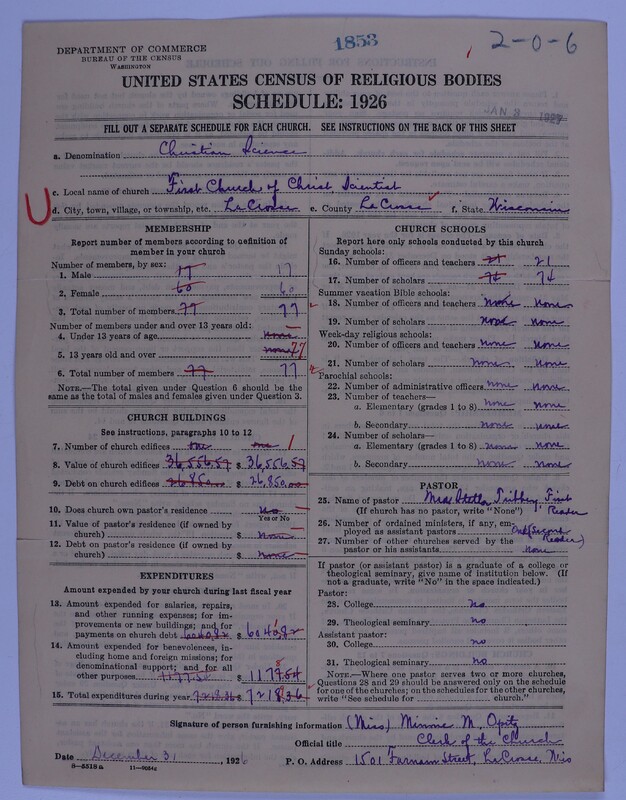 1853
2-0-6
DEPARTMENT OF COMMERCE
BUREAU OF THE CENSUS
WASHINGTON
UNITED STATES CENSUS OF RELIGIOUS BODIES
SCHEDULE: 1926
JAN 3 1927
FILL OUT A SEPARATE SCHEDULE FOR EACH CHURCH. SEE INSTRUCTIONS ON THE BACK OF THIS SHEET
a. Denomination Christian Science
c. Local name of church First Church of Christ Scientist
d. City, town, village, or township, etc. La Crosse e. County La Crosse f. State Wisconsin
MEMBERSHIP
Report number of members according to definition of member in your church
Number of members, by sex:
1. Male 17 17
2. Female 60 60
3. Total number of members 77 77
Number of members under and over 13 years old:
4. Under 13 years of age none
5. 13 years old and over none 77
6. Total number of members 77 77
NOTE.—The total given under Question 6 should be the same as the total of males and females given under Question 3.
CHURCH BUILDINGS
See instructions, paragraphs 10 to 12
7. Number of church edifices one one 1
8. Value of church edifices 36,556.57 $ 36,556.57
9. Debt on church edifices 26,850.00 $ 26,850.00
10. Does church own pastor's residence? No
Yes or No
11. Value of pastor's residence (if owned by church) $ None
12. Debt on pastor's residence (if owned by church) $ None
EXPENDITURES
Amount expended by your church during last fiscal year
13. Amount expended for salaries, repairs, and other running expenses; for improvements or new buildings; and for payments on church debt 6040.82 $ 6040.82
14. Amount expended for benevolences, including home and foreign missions; for denominational support; and for all other purposes 1177.54 $ 1177.54
15. Total expenditures during year 7218.36 $ 7218.36
CHURCH SCHOOLS
Report here only schools conducted by this church
Sunday schools:
16. Number of officers and teachers 21 21
17. Number of scholars 74 74
Summer vacation Bible schools:
18. Number of officers and teachers none none
19. Number of scholars none none
Week-day religious schools:
20. Number of officers and teachers none none
21. Number of scholars none none
Parochial schools:
22. Number of administrative officers none none
23. Number of teachers—
a. Elementary (grades 1 to 8) none none
b. Secondary none none
24. Number of scholars—
a. Elementary (grades 1 to 8) none none
b. Secondary none none
PASTOR
25. Name of pastor Mrs Stella First
(If church has no pastor, write "None") Reader
26. Number of ordained ministers, if any, employed as assistant pastors One (Second Reader)
27. Number of other churches served by the pastor or his assistants none
If pastor (or assistant pastor) is a graduate of a college or theological seminary, give name of institution below. (If not a graduate, write "No" in the space indicated.)
Pastor:
28. College no
29. Theological seminary no
Assistant pastor:
30. College no
31. Theological seminary no
NOTE.—Where one pastor serves two or more churches, Questions 28 and 29 should be answered only on the schedule for one of the churches; on the schedules for the other churches, write "See schedule for ______ church."
Signature of person furnishing information (Miss) Minnie M. Opitz
Official title Clerk of the Church
Date December 31, 1926 P. O. Address 1501 Farnam Street, La Crosse, Wis
8—5518a 11—9054c